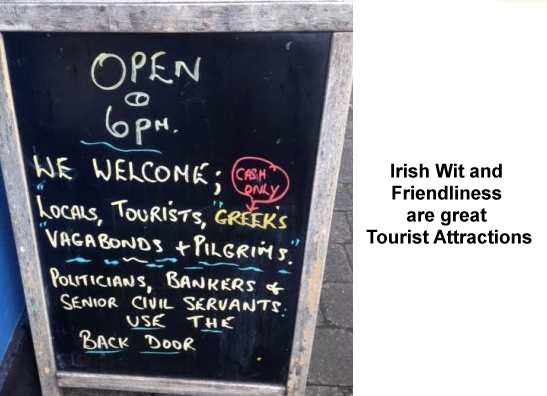 OPEN
@
6PM.
WE WELCOME;
CASH
ONLY
"LOCALS, TOURISTS, "GREEK'S
"VAGABONDS + PILGRIMS."
POLITICIANS, BANKERS &
SENIOR CIVIL SERVANTS.
USE THE
BACK DOOR
Irish Wit and
Friendliness
are great
Tourist Attractions